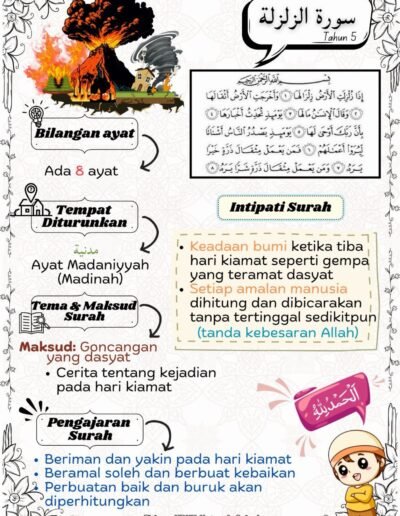 سورة الزلزلة
Tahun 5
بِسْمِ اللَّهِ الرَّحْمَٰنِ الرَّحِيمِ
إِذَا زُلْزِلَتِ الْأَرْضُ زِلْزَالَهَا ۝١ وَأَخْرَجَتِ الْأَرْضُ أَثْقَالَهَا
۝٢ وَقَالَ الْإِنْسَانُ مَا لَهَا ۝٣ يَوْمَئِذٍ تُحَدِّثُ أَخْبَارَهَا ۝٤
بِأَنَّ رَبَّكَ أَوْحَىٰ لَهَا ۝٥ يَوْمَئِذٍ يَصْدُرُ النَّاسُ أَشْتَاتًا
لِيُرَوْا أَعْمَالَهُمْ ۝٦ فَمَنْ يَعْمَلْ مِثْقَالَ ذَرَّةٍ خَيْرًا
يَرَهُ ۝٧ وَمَنْ يَعْمَلْ مِثْقَالَ ذَرَّةٍ شَرًّا يَرَهُ ۝٨
Bilangan ayat
Ada 8 ayat
Tempat
Diturunkan
مدنية
Ayat Madaniyyah
(Madinah)
Intipati Surah
Keadaan bumi ketika tiba
hari kiamat seperti gempa
yang teramat dasyat
Setiap amalan manusia
dihitung dan dibicarakan
tanpa tertinggal sedikitpun
(tanda kebesaran Allah)
Tema & Maksud
Surah
Maksud: Goncangan
yang dasyat
Cerita tentang kejadian
pada hari kiamat
الحمد لله
Pengajaran
Surah
Beriman dan yakin pada hari kiamat
Beramal soleh dan berbuat kebaikan
Perbuatan baik dan buruk akan
diperhitungkan